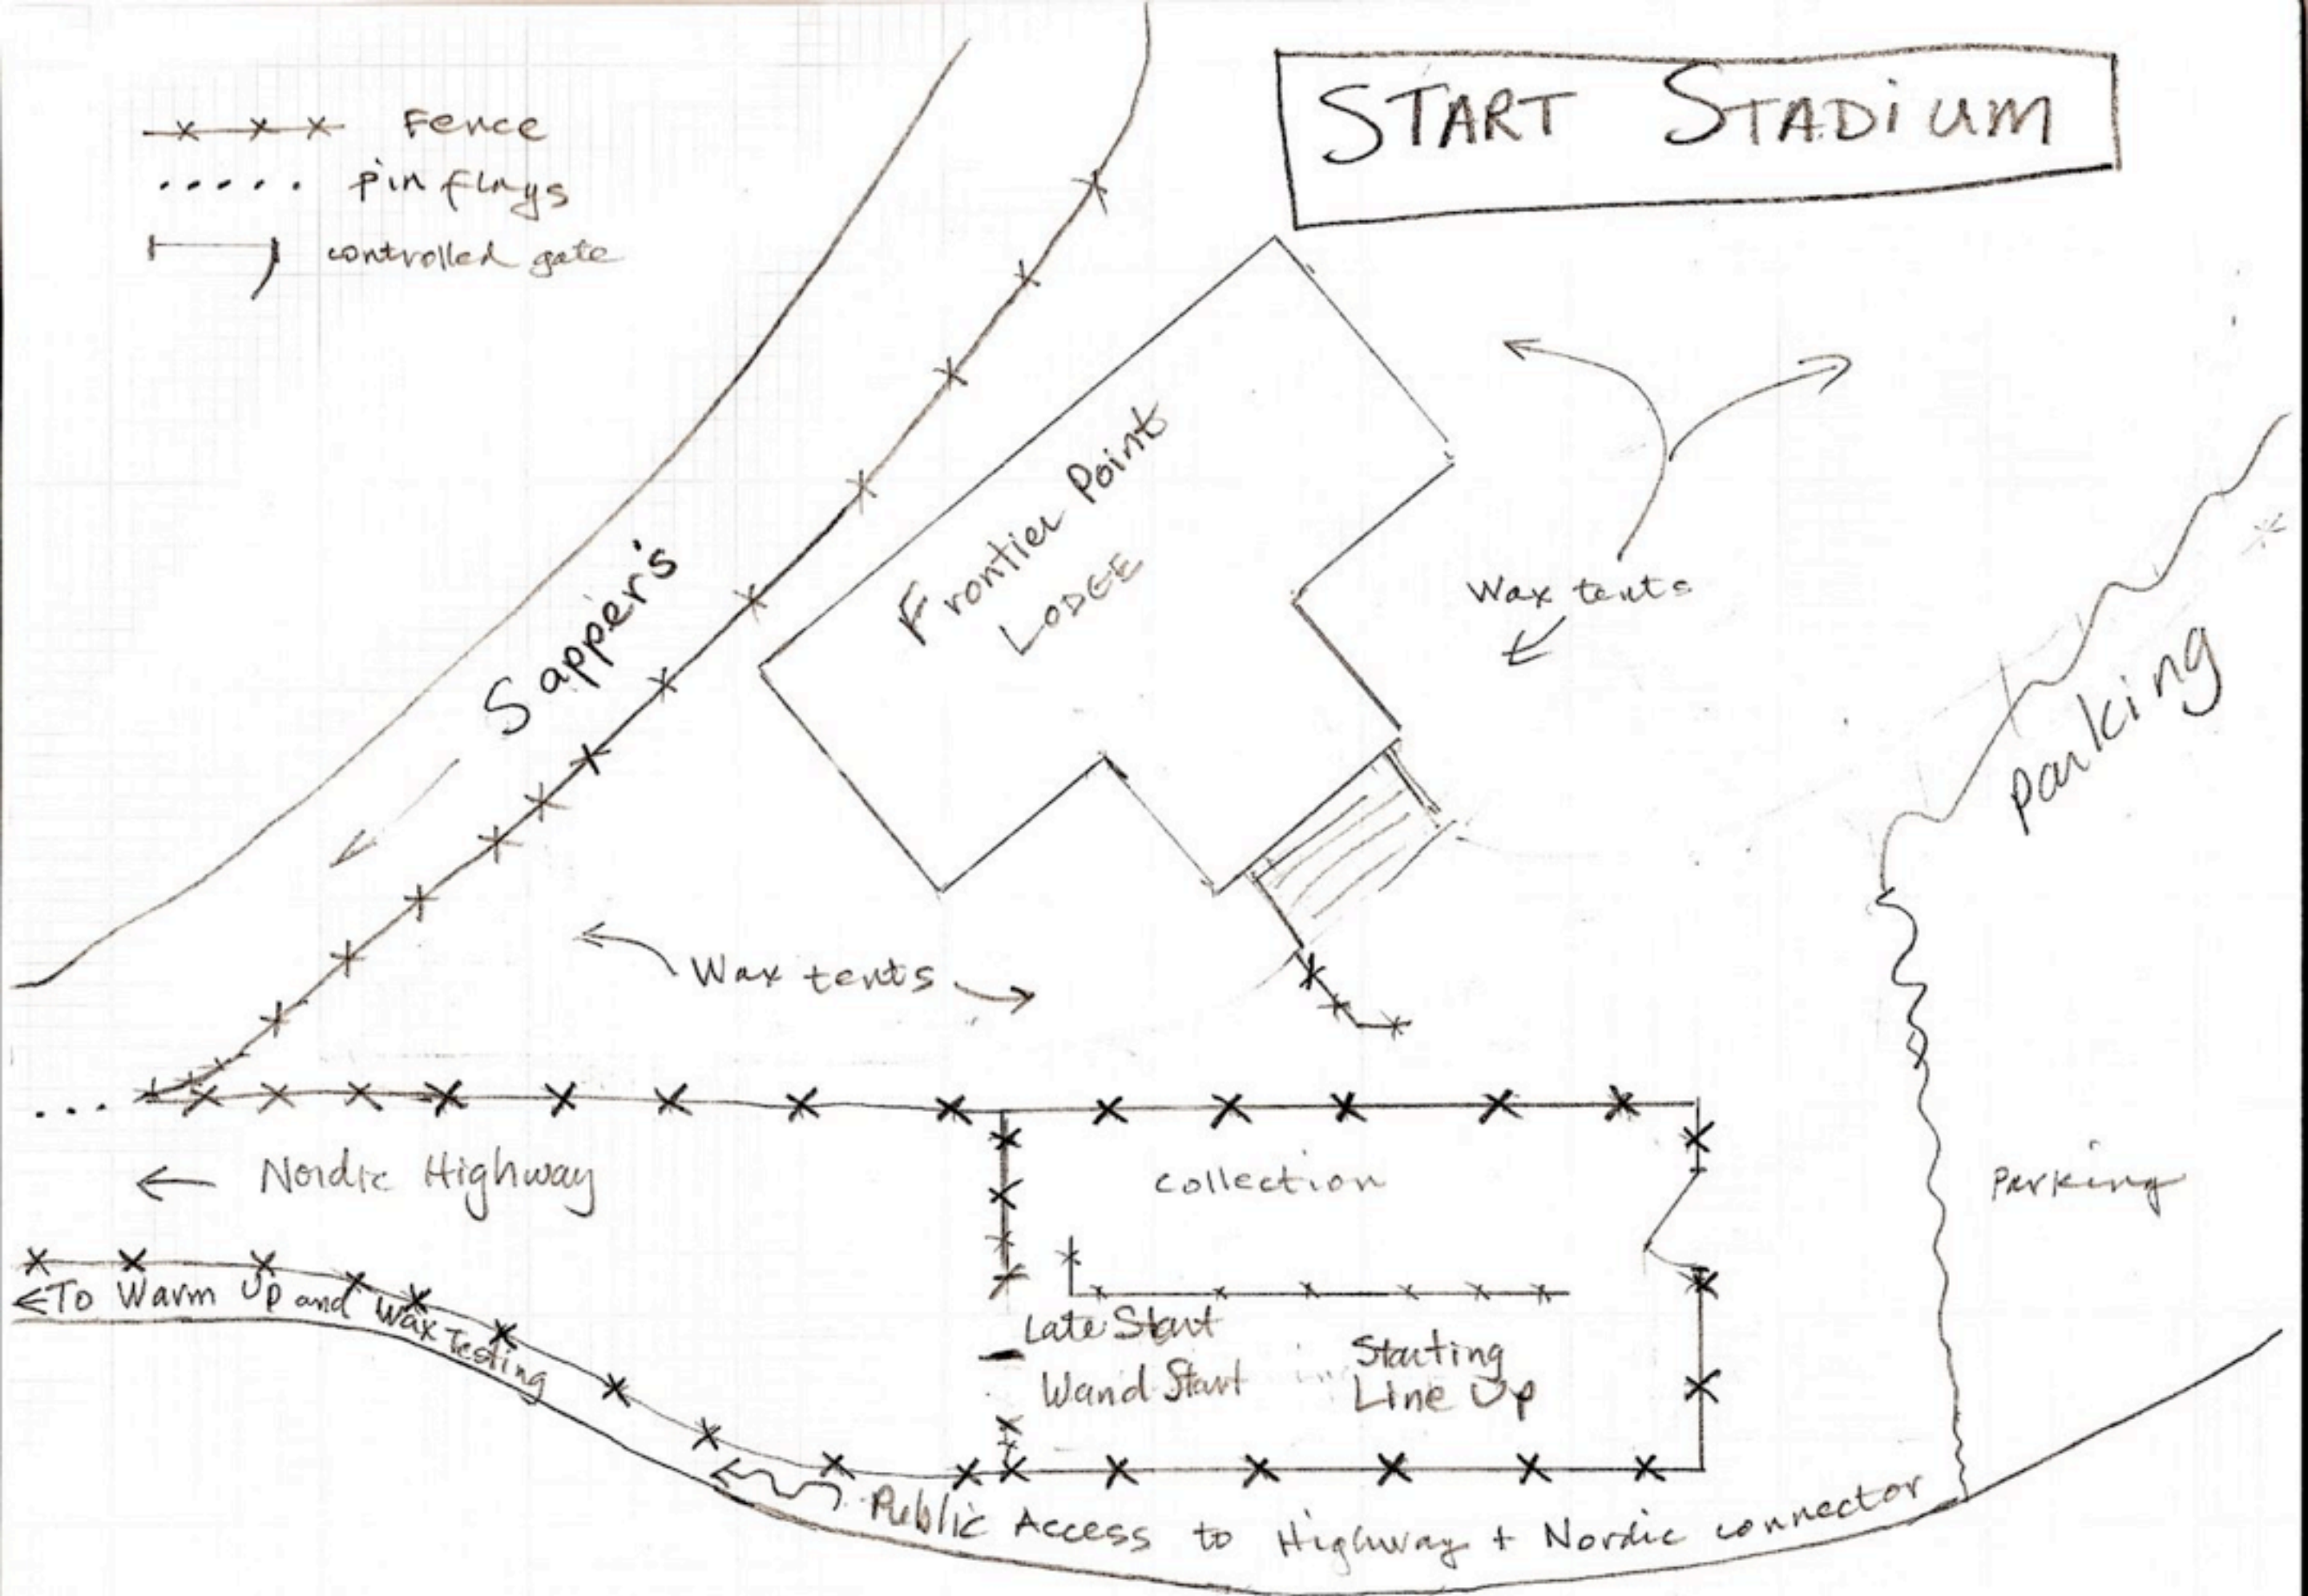 START STADIUM
Fence
pin flags
controlled gate
Frontier Point
LODGE
Sapper's
Wax tents
Parking
Wax tents
Nordic Highway
collection
Parking
To Warm Up and Wax Testing
Late Start
Wand Start
Starting
Line Up
Public Access to Highway + Nordic connector